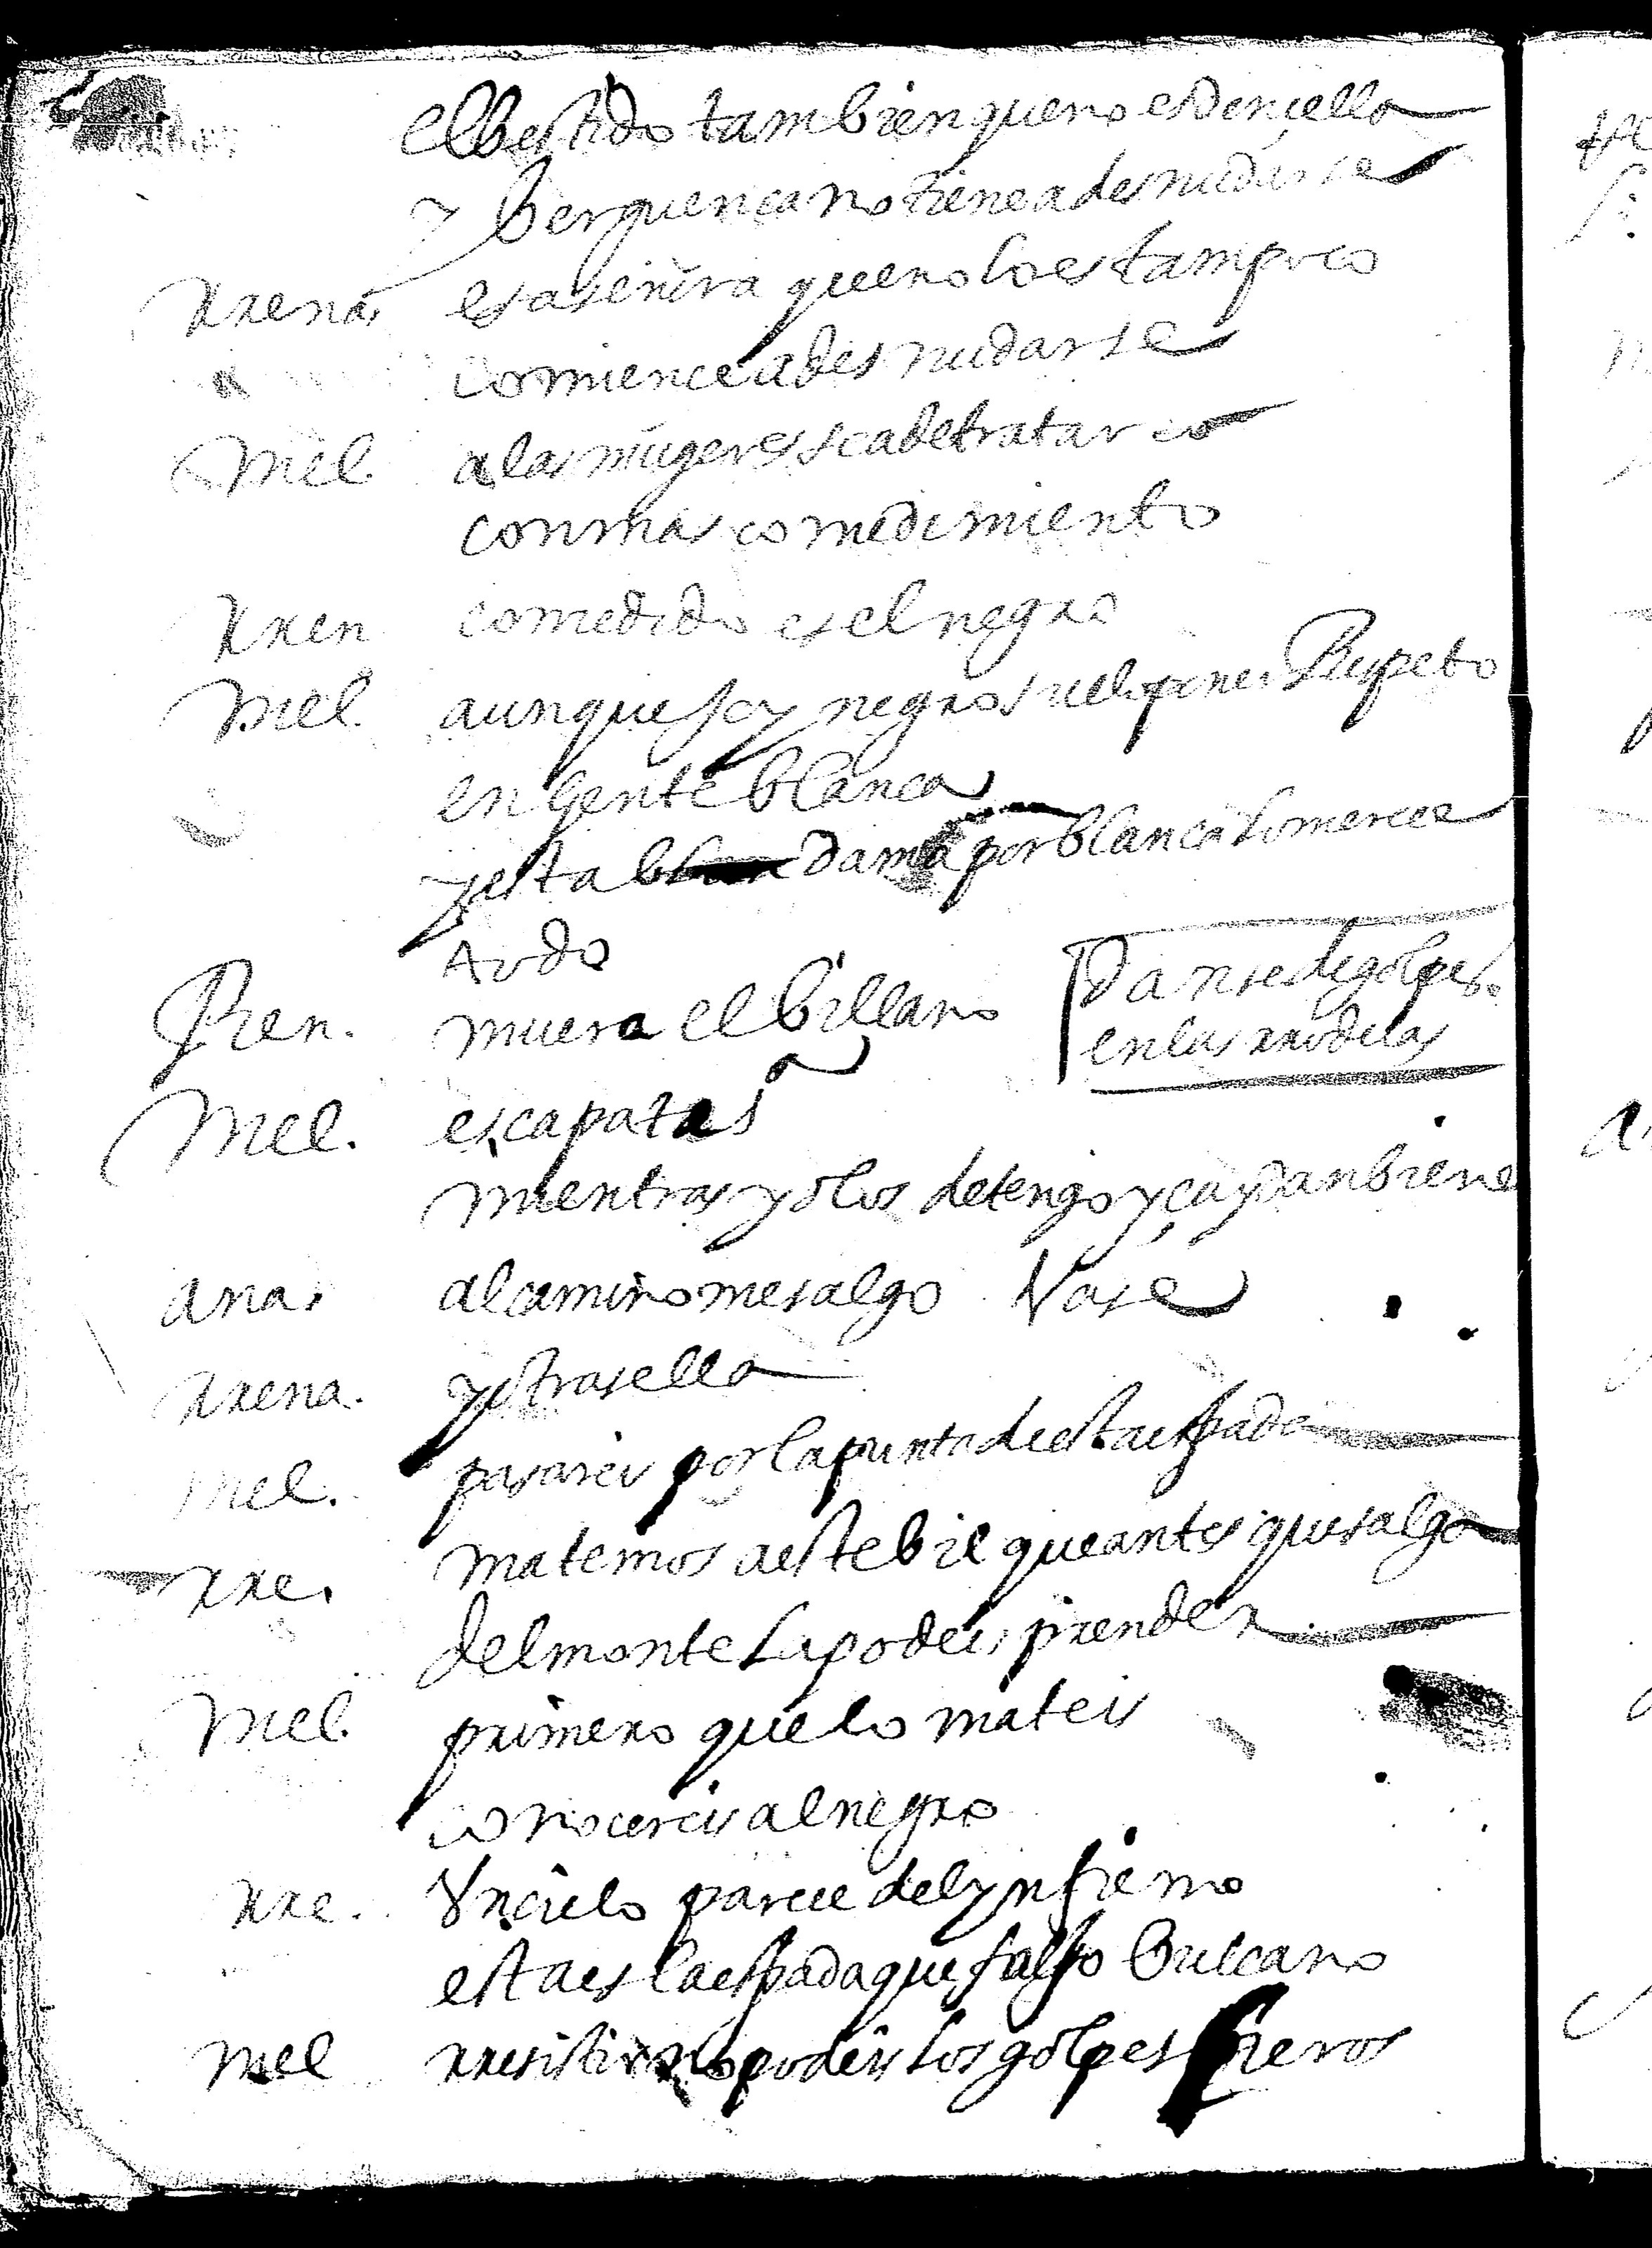 el bestido tambien que no es donçella
y berguença no tiene a desnudarse
rrena. esa señora que no lo es tampoco
comience a desnudarse
mel. a las mugeres se a de tratar
con mas comedimiento
rren comedido es el negro
mel. aunque soy negro suelo poner Respeto
en gente blanca
y esta dama por blanca lo merece
todo
Ren. muera el billano
Danse de golpes
en las rrodelas
mel. escapate
mientras yo los detengo y
anar al camino me salgo Vase
rrena. yd tras ella
mel. pasareis por la punta de esta espada
rre. matemos a este bil que antes que salga
del monte la podeis prender
mel. primero que lo mateis
conocereis al negro
rre. Un çielo parece del ynfierno
esta es la espada que falso Bulcano
mel rresistir no podeis los golpes fieros